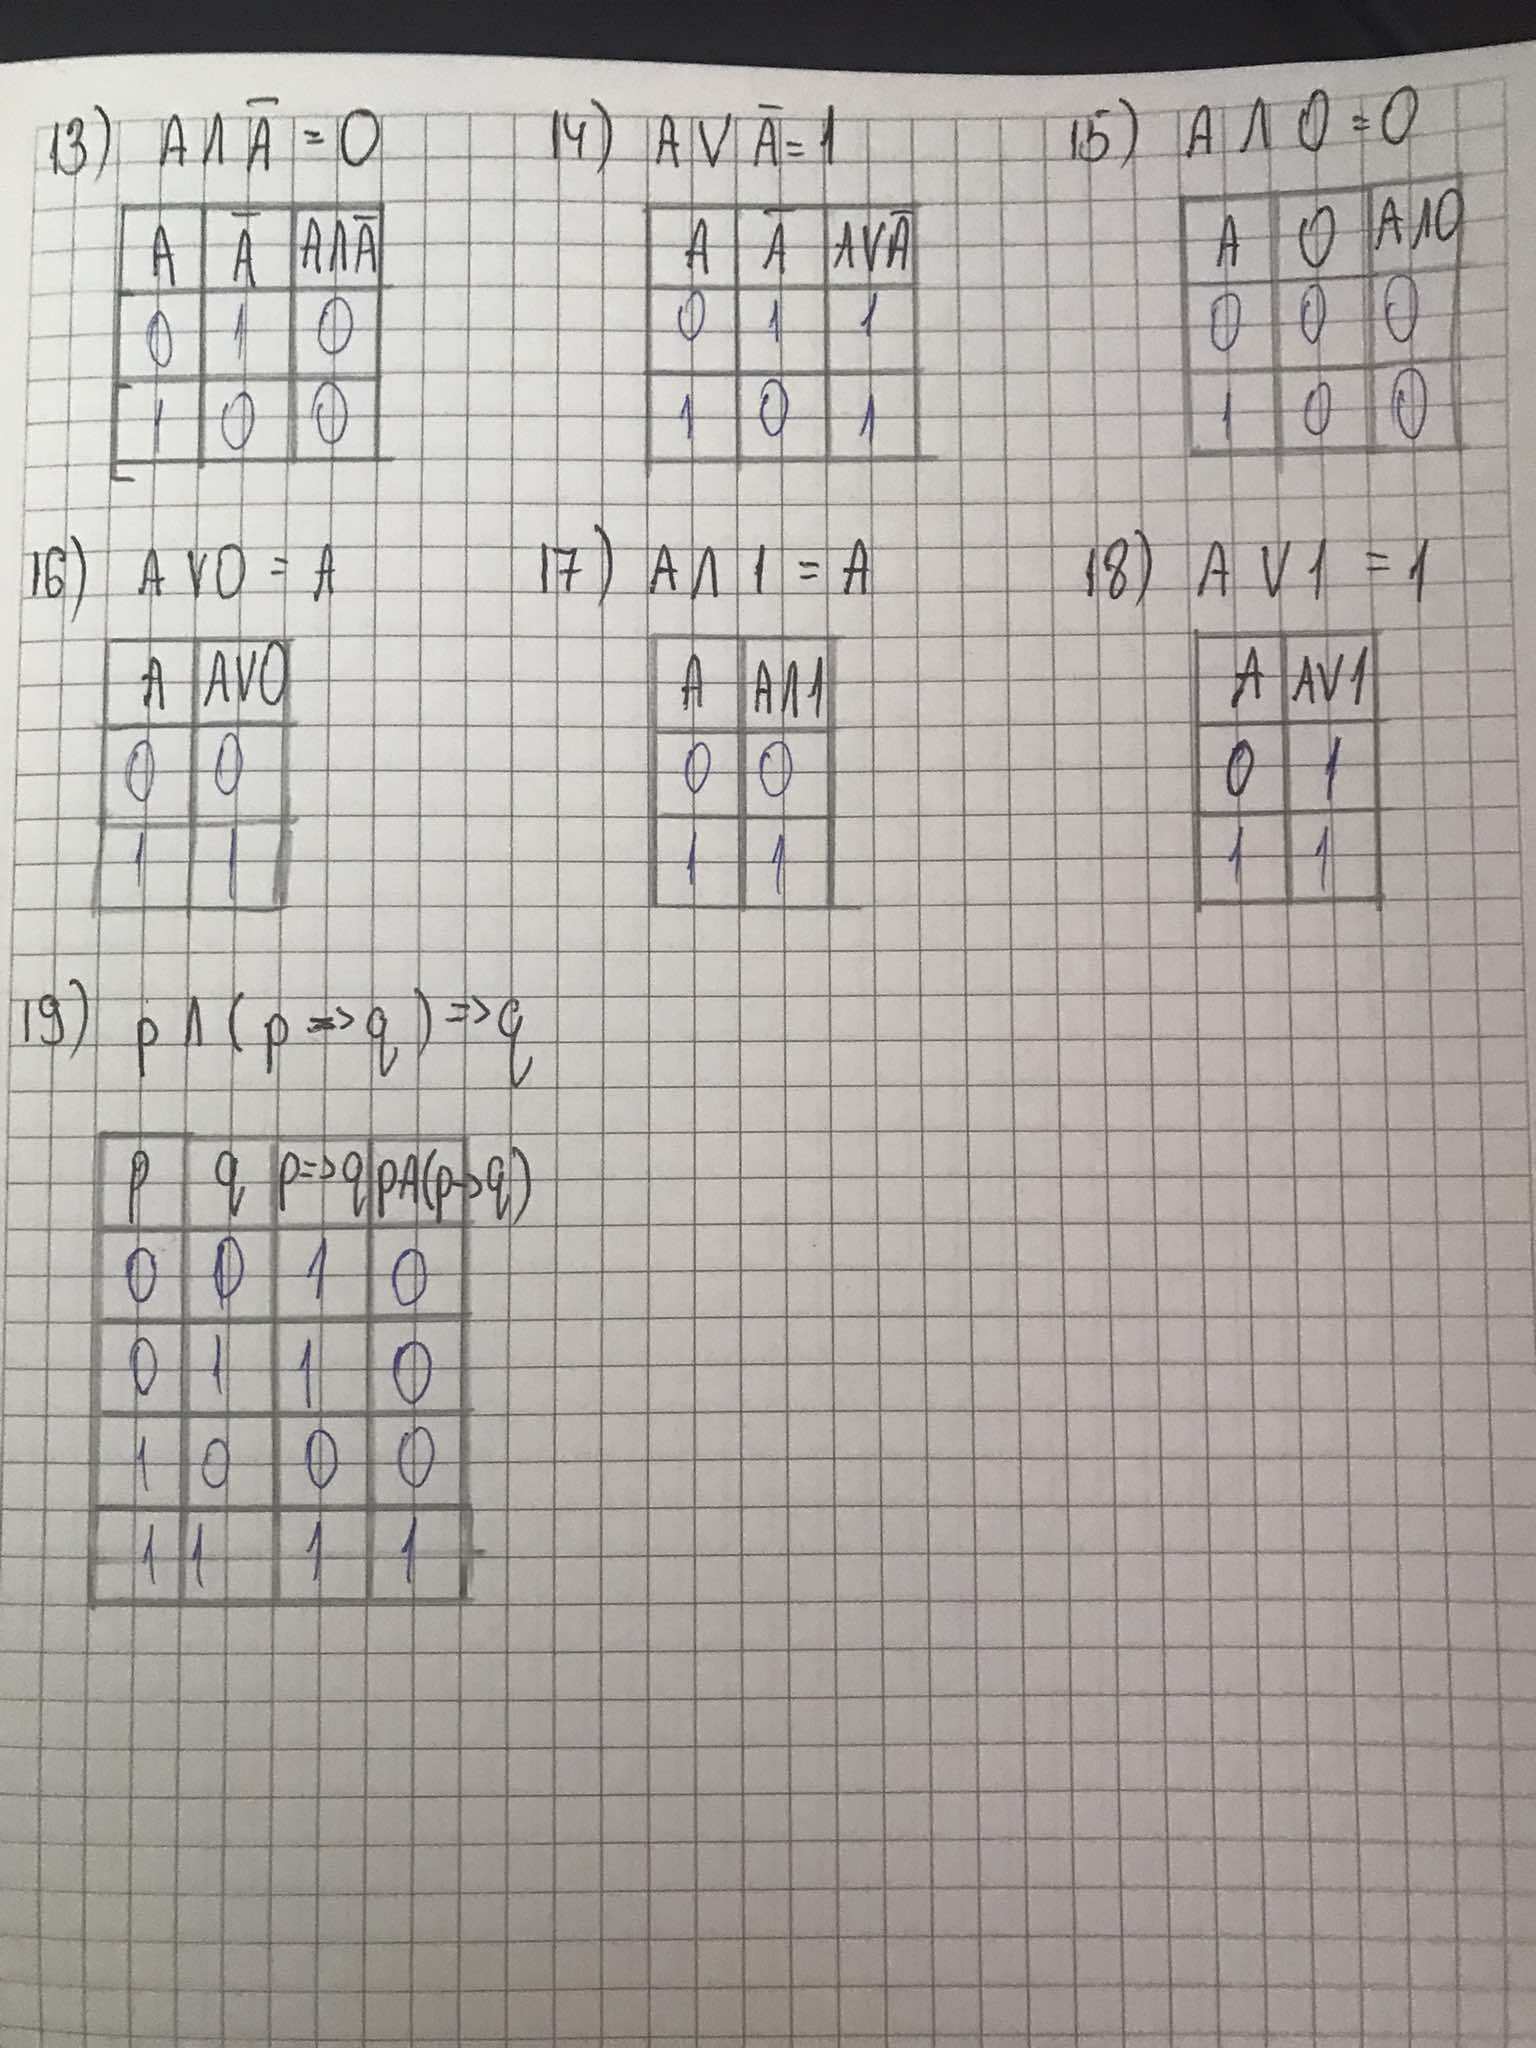 13) A ∧ Ā = 0
A Ā A∧Ā
0 1 0
1 0 0
14) A ∨ Ā = 1
A Ā A∨Ā
0 1 1
1 0 1
15) A ∧ 0 = 0
A 0 A∧0
0 0 0
1 0 0
16) A ∨ 0 = A
A A∨0
0 0
1 1
17) A ∧ 1 = A
A A∧1
0 0
1 1
18) A ∨ 1 = 1
A A∨1
0 1
1 1
19) p ∧ (p => q) => q
p q p=>q p∧(p->q)
0 0 1 0
0 1 1 0
1 0 0 0
1 1 1 1